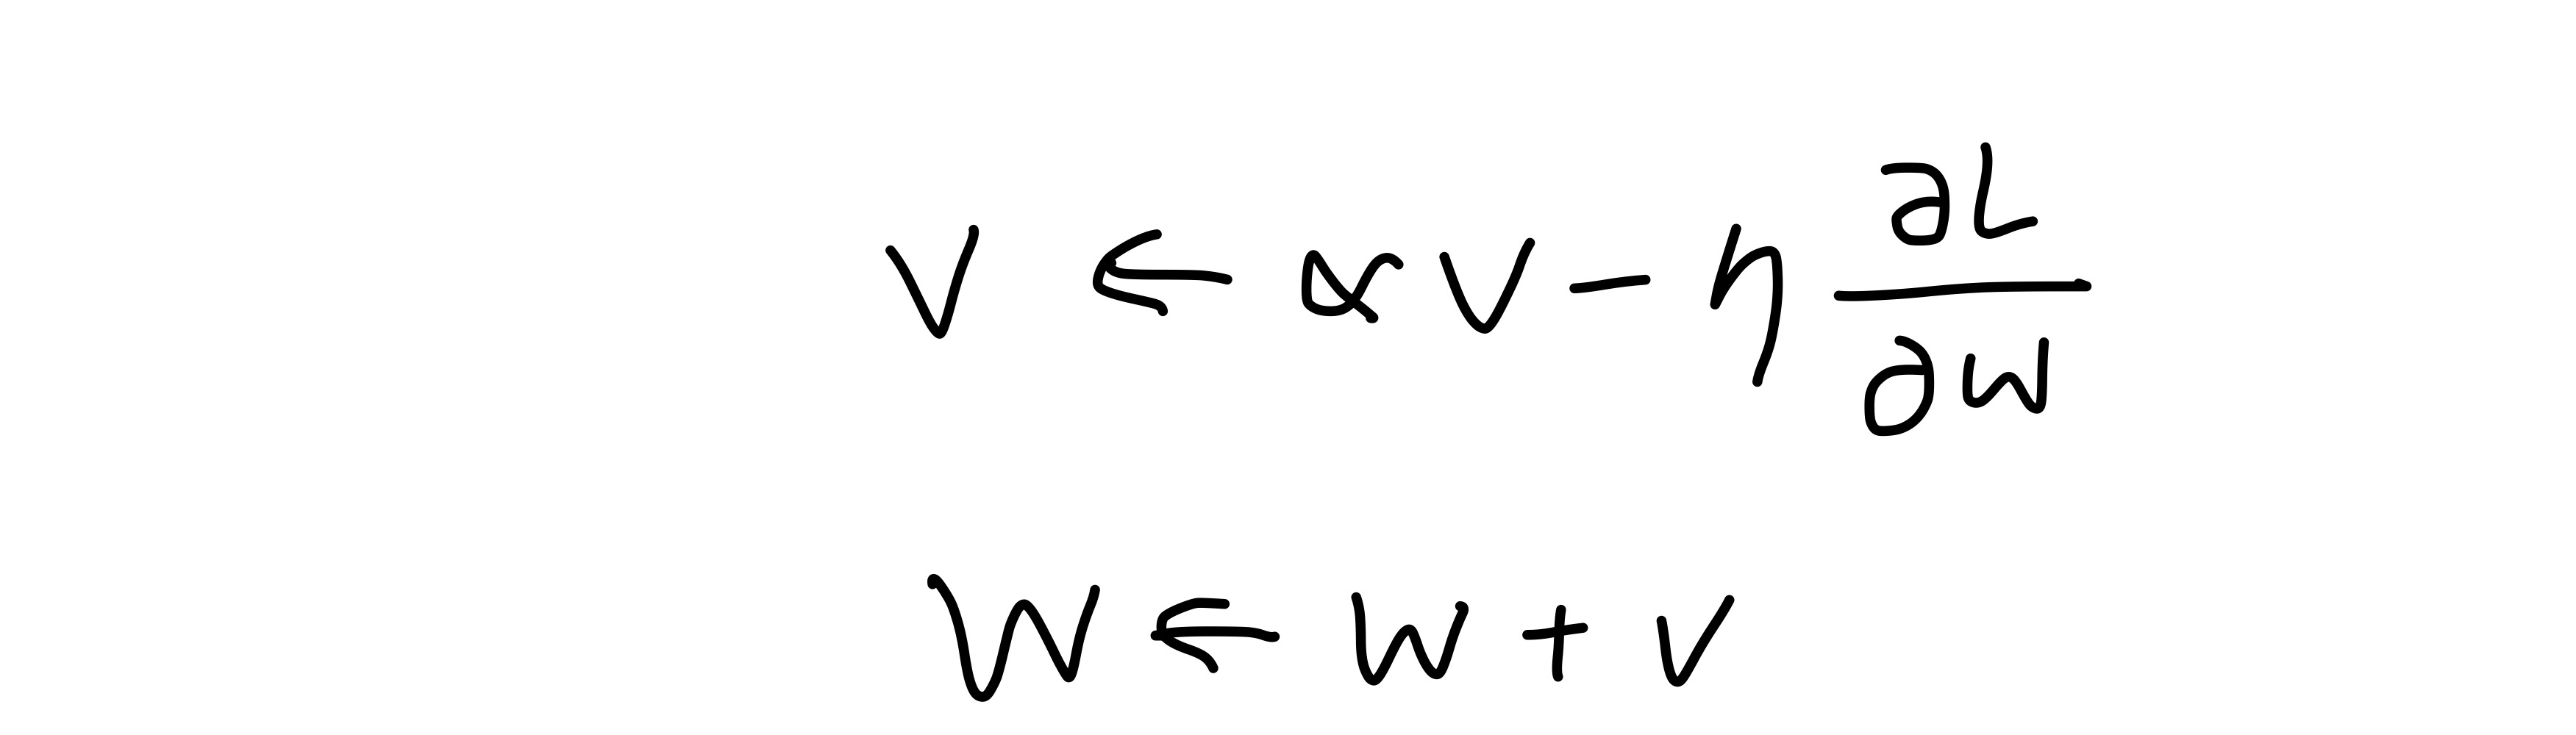 v ← αv − η ∂L/∂W
W ← W + v